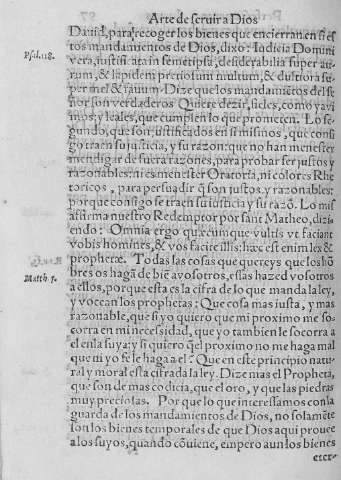 Arte de seruir a Dios
Dauid, para recoger los bienes que encierran en si es
tos mandamientos de Dios, dixo: Iudicia Domini
Psal. 118.
vera, iustificata in semetipsa, desiderabilia super au
rum, & lapidem preciosum multum, & dulciora su
per mel & fauum. Dize que los mandamiẽtos del se
ñor son verdaderos. Quiere dezir, fieles, como ya vi
mos, y leales, que cumplen lo que prometen. Lo se
gundo, que son justificados en si mismos, que consi
go traen su justicia, y su razon: que no han menester
mendigar de fuera razones, para probar ser justos y
razonables: ni es menester Oratoria, ni colores Rhe
toricos, para persuadir q̃ son justos, y razonables:
porque consigo se traen su iusticia y su razõ. Lo mis
afirma nuestro Redemptor por sant Matheo, dizi
endo: Omnia ergo quęcumque vultis vt faciant
vobis homines, & vos facite illis: hæc est enim lex &
prophetæ. Todas las cosas que quereys que los hõ
bres os hagã de biẽ a vosotros, essas hazed vosotros
Matth. 7.
a ellos, porque esta es la cifra de lo que manda la ley,
y vocean los prophetas: Que cosa mas iusta, y mas
razonable, que si yo quiero que mi proximo me so-
corra en mi necessidad, que yo tambien le socorra a
el en la suya: y si quiero q̃ el proximo no me haga mal
que ni yo se le haga a el? Que en este principio natu
ral y moral esta cifrada la ley. Dize mas el Propheta,
que son de mas codicia, que el oro, y que las piedras
muy preciosas. Por que lo que interessamos con la
guarda de los mandamientos de Dios, no solamẽte
son los bienes temporales de que Dios aqui prouee
a los suyos, quando cõuiene, empero aun los bienes
eter-